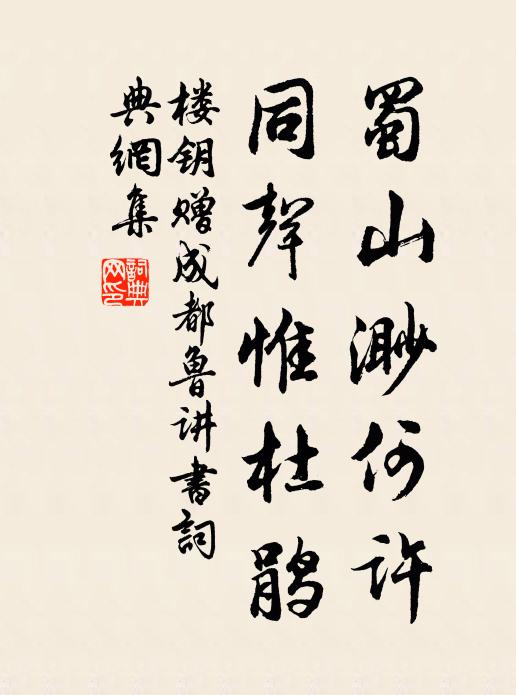 蜀山渺何许
同声惟杜鹃
楼钥赠成都鲁讲书詞
典網集
詞典网印